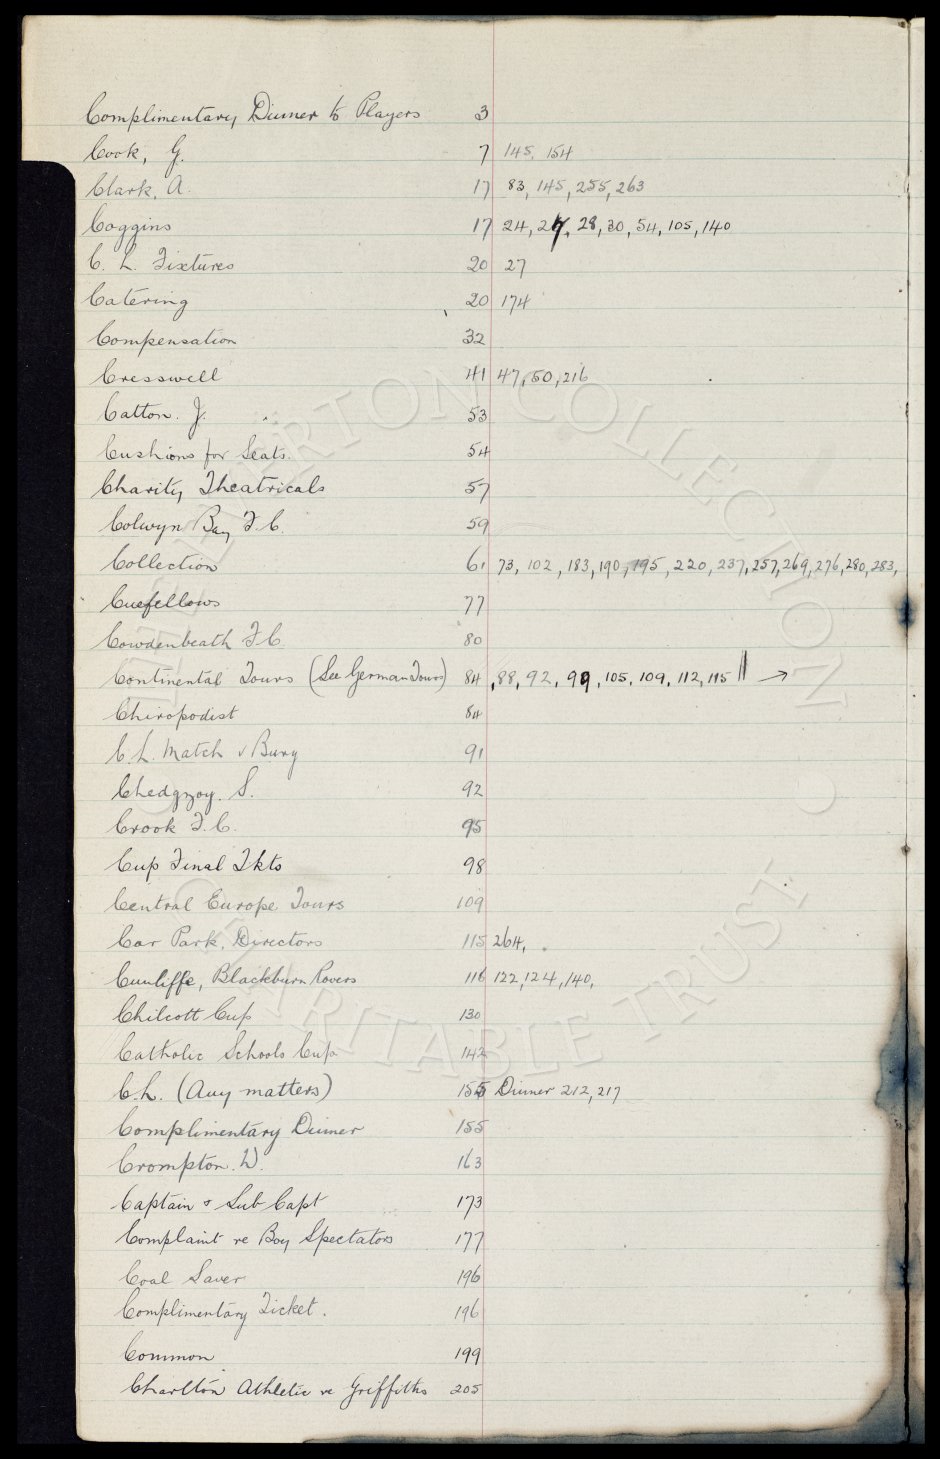 Complimentary Dinner to Players 3
Cook, G. 7 145, 154
Clark, A. 17 83, 145, 255, 263
Coggins 17 24, 27, 28, 30, 54, 105, 140
C. L. Fixtures 20 27
Catering 20 174
Compensation 32
Cresswell 41 47, 50, 216
Catton. J. 53
Cushions for Seats. 54
Charity Theatricals 57
Colwyn Bay F.C. 59
Collection 61 73, 102, 183, 190, 195, 220, 237, 257, 269, 276, 280, 283,
Cuefellows 77
Cowdenbeath F.C. 80
Continental Tours (See German Tours) 84, 88, 92, 99, 105, 109, 112, 115 || →
Chiropodist 84
C.L. Match v Bury 91
Chedgzoy. S. 92
Crook F.C. 95
Cup Final Tkts 98
Central Europe Tours 109
Car Park, Directors 115 264,
Cunliffe, Blackburn Rovers 116 122, 124, 140,
Chilcott Cup 130
Catholic Schools Cup 142
C.L. (Any matters) 155 Dinner 212, 217
Complimentary Dinner 155
Crompton. W. 163
Captain & Sub Capt 173
Complaint re Boy Spectators 177
Coal Saver 196
Complimentary Ticket. 196
Common 199
Charlton Athletic re Griffiths 205
EVERTON COLLECTION
CHARITABLE TRUST